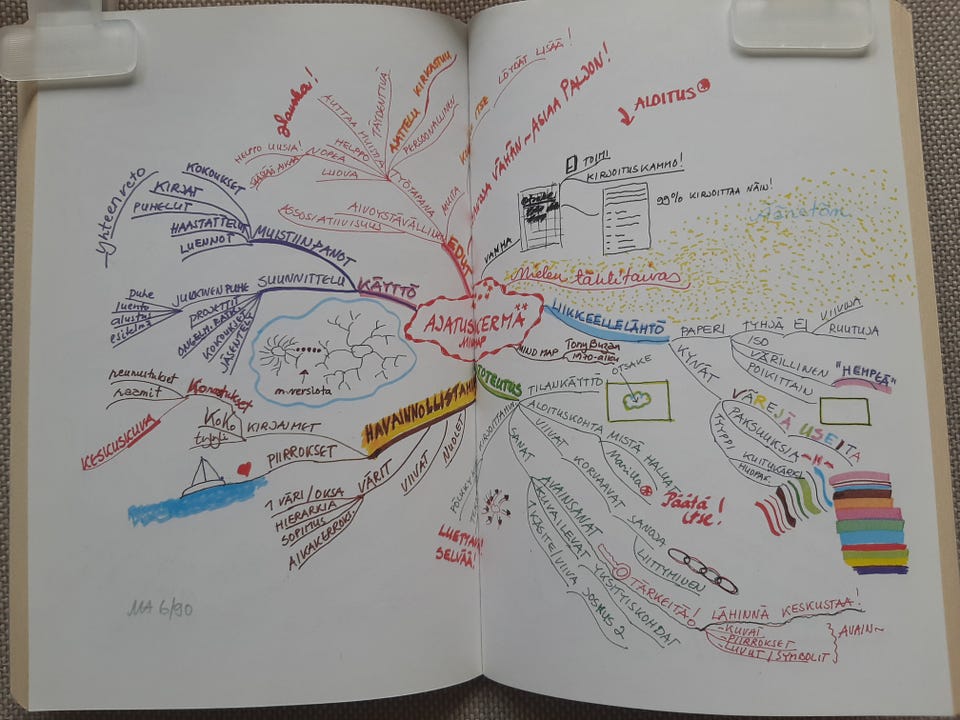 AJATUSKERMÄ
MINDMAP
EDUT
hauska!
HELPPO UUSIA!
SÄÄSTÄÄ AIKAA
NOPEA
HELPPO
LUOVA
AUTTAA MUISTIA
TÄYDENTYVÄ
AJATTELU KIRKASTUU
PERSOONALLINEN
TYÖTAPANA
ASSOSIATIIVISUUS
AIVOYSTÄVÄLLINEN
MUITA
ITSE
LÖYDÄT LISÄÄ!
VÄHÄN - ASIAA PALJON!
ALOITUS
VANHA
TOIMI
KIRJOITUSKAMMO!
99% KIRJOITTAA NÄIN!
Äänetön
Mielen tähtitaivas
LIIKKEELLELÄHTÖ
PAPERI
TYHJÄ EI
VIIVOJA
RUUTUJA
ISO
VÄRILLINEN
POIKITTAIN
"HEMPEÄ"
KYNÄT
VÄREJÄ USEITA
PAKSUUKSIA -"-
TYYPPI
KUITUKÄRKI
HUOPAK.
MIND MAP
Tony Buzan
OTSAKE
TOTEUTUS
TILANKÄYTTÖ
ALOITUSKOHTA
MISTÄ HALUAT
Päätä itse!
VIIVAT
KORVAAVAT
SANOJA
LIITTYMINEN
SANAT
AVAINSANAT
TÄRKEITÄ!
LÄHINNÄ KESKUSTAA!
-KUVAT
-PIIRROKSET
-LUVUT / SYMBOLIT
AVAIN~
KUVAILEVAT
YKSITYISKOHDAT
1 KÄSITE/VIIVA
JOSKUS 2
LUETTAVA!
SELVÄÄ!
HAVAINNOLLISTAMINEN
NUOLET
VIIVAT
VÄRIT
1 VÄRI / OKSA
HIERARKIA
SOPIMUS
AIKAKERROKS.
PIIRROKSET
KIRJAIMET
KOKO
tyyli
Korostukset
reunustukset
raamit
KESKUSKUVA
m-rerslota
KÄYTTÖ
MUISTIINPANOT
Yhteenveto
KOKOUKSET
KIRJAT
PUHELUT
HAASTATTELUT
LUENNOT
SUUNNITTELU
JULKINEN PUHE
Puhe
luento
alustus
esitelmä
PROJEKTIT
ONGELM. RATK.
KOKOUKSET
JÄSENTELY
MA 6/90